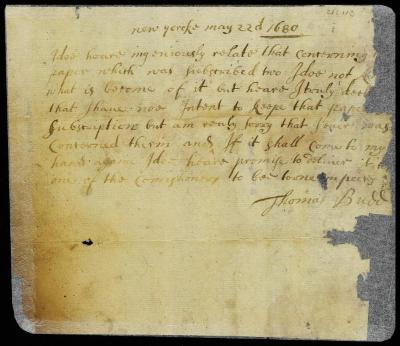 new yorke may 22d 1680
I doe heare ingeniously relate that concerning
paper which was subscribed two I doe not
what is become of it but heare I truly
that I have noe Intent to keepe that pap
Subscription but am realy sorry that I ever was
concerned therin and If it shall come to my
hand againe I doe heare promise to deliver it
one of the Comishoners to bee torne in peices
Thomas Budd